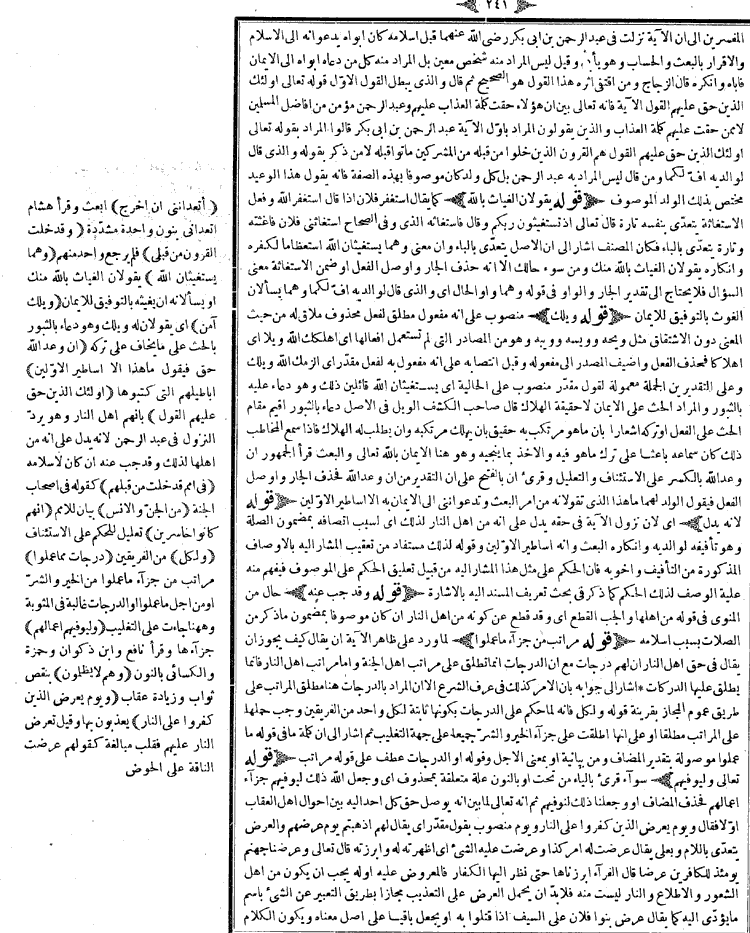 ﴿ ٢٤١ ﴾
المفسرين الى ان الآية نزلت فى عبد الرحمن بن ابى بكر رضى الله عنهما قبل اسلامه كان ابواه يدعوانه الى الاسلام
والاقرار بالبعث والحساب وهو يأبى وقيل ليس المراد منه شخص معين بل المراد منه كل من دعاه ابواه الى الايمان
فاباه وانكره قال الزجاج ومن اقتفى اثره هذا القول هو الصحيح ثم قال والذى يبطل القول الاول قوله تعالى اولئك
الذين حق عليهم القول الآية فانه تعالى بين ان هؤلاء حقت كلمة العذاب عليهم وعبد الرحمن مؤمن من افاضل المسلمين
لا ممن حقت عليهم كلمة العذاب والذين يقولون المراد باول الآية عبد الرحمن بن ابى بكر قالوا المراد بقوله تعالى
اولئك الذين حق عليهم القول هم القرون الذين خلوا من قبله من المشركين ماتوا قبله لا من ذكر بقوله والذى قال
لوالديه اف لكما ومن قال ليس المراد به عبد الرحمن بل كل ولد كان موصوفا بهذه الصفة فانه يقول هذا الوعيد
مختص بذلك الولد الموصوف ﴿ قوله يقولان الغياث بالله ﴾ كما يقال استغفر فلان اذا قال استغفر الله وفعل
الاستغاثة يتعدى بنفسه تارة قال تعالى اذ تستغيثون ربكم وقال فاستغاثه الذى وفى الصحاح استغاثنى فلان فاغثته
وتارة يتعدى بالباء فكان المصنف اشار الى ان الاصل يتعدى بالباء وان معنى وهما يستغيثان الله استعظاما لكفره
وانكاره يقولان الغياث بالله منك ومن سوء حالك الا انه حذف الجار واوصل الفعل او ضمن الاستغاثة معنى
السؤال فلا يحتاج الى تقدير الجار والواو فى قوله وهما واو الحال اى والذى قال لوالديه اف لكما وهما يسألان
الغوث بالتوفيق للايمان ﴿ قوله ويلك ﴾ منصوب على انه مفعول مطلق لفعل محذوف ملاق له من حيث
المعنى دون الاشتقاق مثل ويحه وويسه وويبه وهو من المصادر التى لم تستعمل افعالها اى اهلكك الله ويلا اى
اهلاكا فحذف الفعل واضيف المصدر الى مفعوله وقيل انتصابه على انه مفعول به لفعل مقدر اى الزمك الله ويلك
وعلى التقديرين الجملة معمولة لقول مقدر منصوب على الحالية اى يستغيثان الله قائلين ذلك وهو دعاء عليه
بالثبور والمراد الحث على الايمان لا حقيقة الهلاك قال صاحب الكشف الويل فى الاصل دعاء بالثبور اقيم مقام
الحث على الفعل او تركه اشعارا بان ما هو مرتكب به حقيق بان يهلك مرتكبه وان يطلب له الهلاك فاذا سمع المخاطب
ذلك كان سماعه باعثا على ترك ما هو فيه والاخذ بما ينجيه وهو هنا الايمان بالله تعالى والبعث قرأ الجمهور ان
وعد الله بالكسر على الاستئناف والتعليل وقرئ ان بالفتح على ان التقدير من ان وعد الله فحذف الجار واوصل
الفعل فيقول الولد لهما ما هذا الذى تقولانه من امر البعث وتدعواننى الى الايمان به الا اساطير الاولين ﴿ قوله
لانه يدل ﴾ اى لان نزول الآية فى حقه يدل على انه من اهل النار لذلك اى لسبب اتصافه بمضمون الصلة
وهو تأفيفه لوالديه وانكاره البعث وانه اساطير الاولين وقوله لذلك مستفاد من تعقيب المشار اليه بالاوصاف
المذكورة من التأفيف واخويه فان الحكم على مثل هذا المشار اليه من قبيل تعليق الحكم على الموصوف فيفهم منه
علية الوصف لذلك الحكم كما ذكر فى بحث تعريف المسند اليه بالاشارة ﴿ قوله وقد جب عنه ﴾ حال من
المنوى فى قوله من اهلها والجب القطع اى وقد قطع عن كونه من اهل النار ان كان موصوفا بمضمون ما ذكر من
الصلات بسبب اسلامه ﴿ قوله مراتب من جزآء ما عملوا ﴾ لما ورد على ظاهر الآية ان يقال كيف يجوز ان
يقال فى حق اهل النار ان لهم درجات مع ان الدرجات انما تطلق على مراتب اهل الجنة واما مراتب اهل النار فانما
يطلق عليها الدركات * اشار الى جوابه بان الامر كذلك فى عرف الشرع الا ان المراد بالدرجات هنا مطلق المراتب على
طريق عموم المجاز بقرينة قوله ولكل فانه لما حكم على الدرجات بكونها ثابتة لكل واحد من الفريقين وجب حملها
على المراتب مطلقا او على انها اطلقت على جزآء الخير والشر جميعا على جهة التغليب ثم اشار الى ان كلمة ما فى قوله ما
عملوا موصولة بتقدير المضاف ومن بيانية او بمعنى الاجل وقوله او الدرجات عطف على قوله مراتب ﴿ قوله
تعالى وليوفيهم ﴾ سوآء قرئ بالياء من تحت او بالنون علة متعلقة بمحذوف اى وجعل الله ذلك ليوفيهم جزآء
اعمالهم فحذف المضاف او وجعلنا ذلك لنوفيهم ثم انه تعالى لما بين انه يوصل حق كل احد اليه بين احوال اهل العقاب
اولا فقال ويوم يعرض الذين كفروا على النار ويوم منصوب بقول مقدر اى يقال لهم اذهبتم يوم عرضهم والعرض
يتعدى باللام وبعلى يقال عرضت له امر كذا وعرضت عليه الشئ اى اظهرته له وابرزته قال تعالى وعرضنا جهنم
يومئذ للكافرين عرضا قال الفرآء ابرزناها حتى نظر اليها الكفار فالمعروض عليه اوله يجب ان يكون من اهل
الشعور والاطلاع والنار ليست منه فلابد ان يحمل العرض على التعذيب مجازا بطريق التعبير عن الشئ باسم
ما يؤدى اليه كما يقال عرض بنوا فلان على السيف اذا قتلوا به او يجعل باقيا على اصل معناه ويكون الكلام
( أتعداننى ان اخرج ) ابعث وقرأ هشام
اتعدانى بنون واحدة مشددة ( وقد خلت
القرون من قبلى ) فلم يرجع واحد منهم ( وهما
يستغيثان الله ) يقولان الغياث بالله منك
او يسألانه ان يغيثه بالتوفيق للايمان ( ويلك
آمن ) اى يقولان له ويلك وهو دعاء بالثبور
بالحث على ما يخاف على تركه ( ان وعد الله
حق فيقول ما هذا الا اساطير الاولين )
اباطيلهم التى كتبوها ( اولئك الذين حق
عليهم القول ) بانهم اهل النار وهو يرد
النزول فى عبد الرحمن لانه يدل على انه من
اهلها لذلك وقد جب عنه ان كان لاسلامه
( فى امم قد خلت من قبلهم ) كقوله فى اصحاب
الجنة ( من الجن والانس ) بيان للامم ( انهم
كانوا خاسرين ) تعليل للحكم على الاستئناف
( ولكل ) من الفريقين ( درجات مما عملوا )
مراتب من جزآء ما عملوا من الخير والشر
او من اجل ما عملوا والدرجات غالبة فى المثوبة
وههنا جاءت على التغليب ( وليوفيهم اعمالهم )
جزآءها وقرأ نافع وابن ذكوان وحمزة
والكسائى بالنون ( وهم لا يظلمون ) بنقص
ثواب وزيادة عقاب ( ويوم يعرض الذين
كفروا على النار ) يعذبون بها وقيل تعرض
النار عليهم فقلب مبالغة كقولهم عرضت
الناقة على الحوض